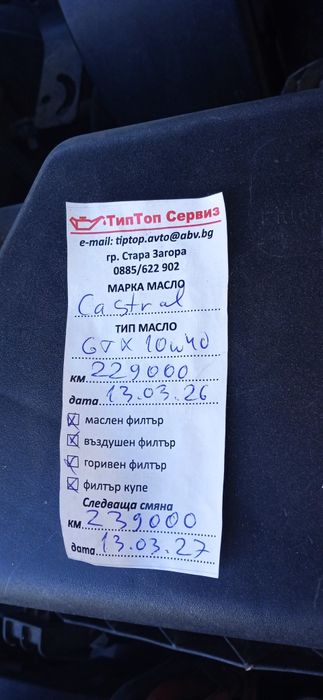 ТипТоп Сервиз
e-mail: tiptop.avto@abv.bg
гр. Стара Загора
0885/622 902
МАРКА МАСЛО
Castral
ТИП МАСЛО
GTX 10w40
км. 229000
дата 13.03.26
маслен филтър
въздушен филтър
горивен филтър
филтър купе
Следваща смяна
км. 239000
дата 13.03.27